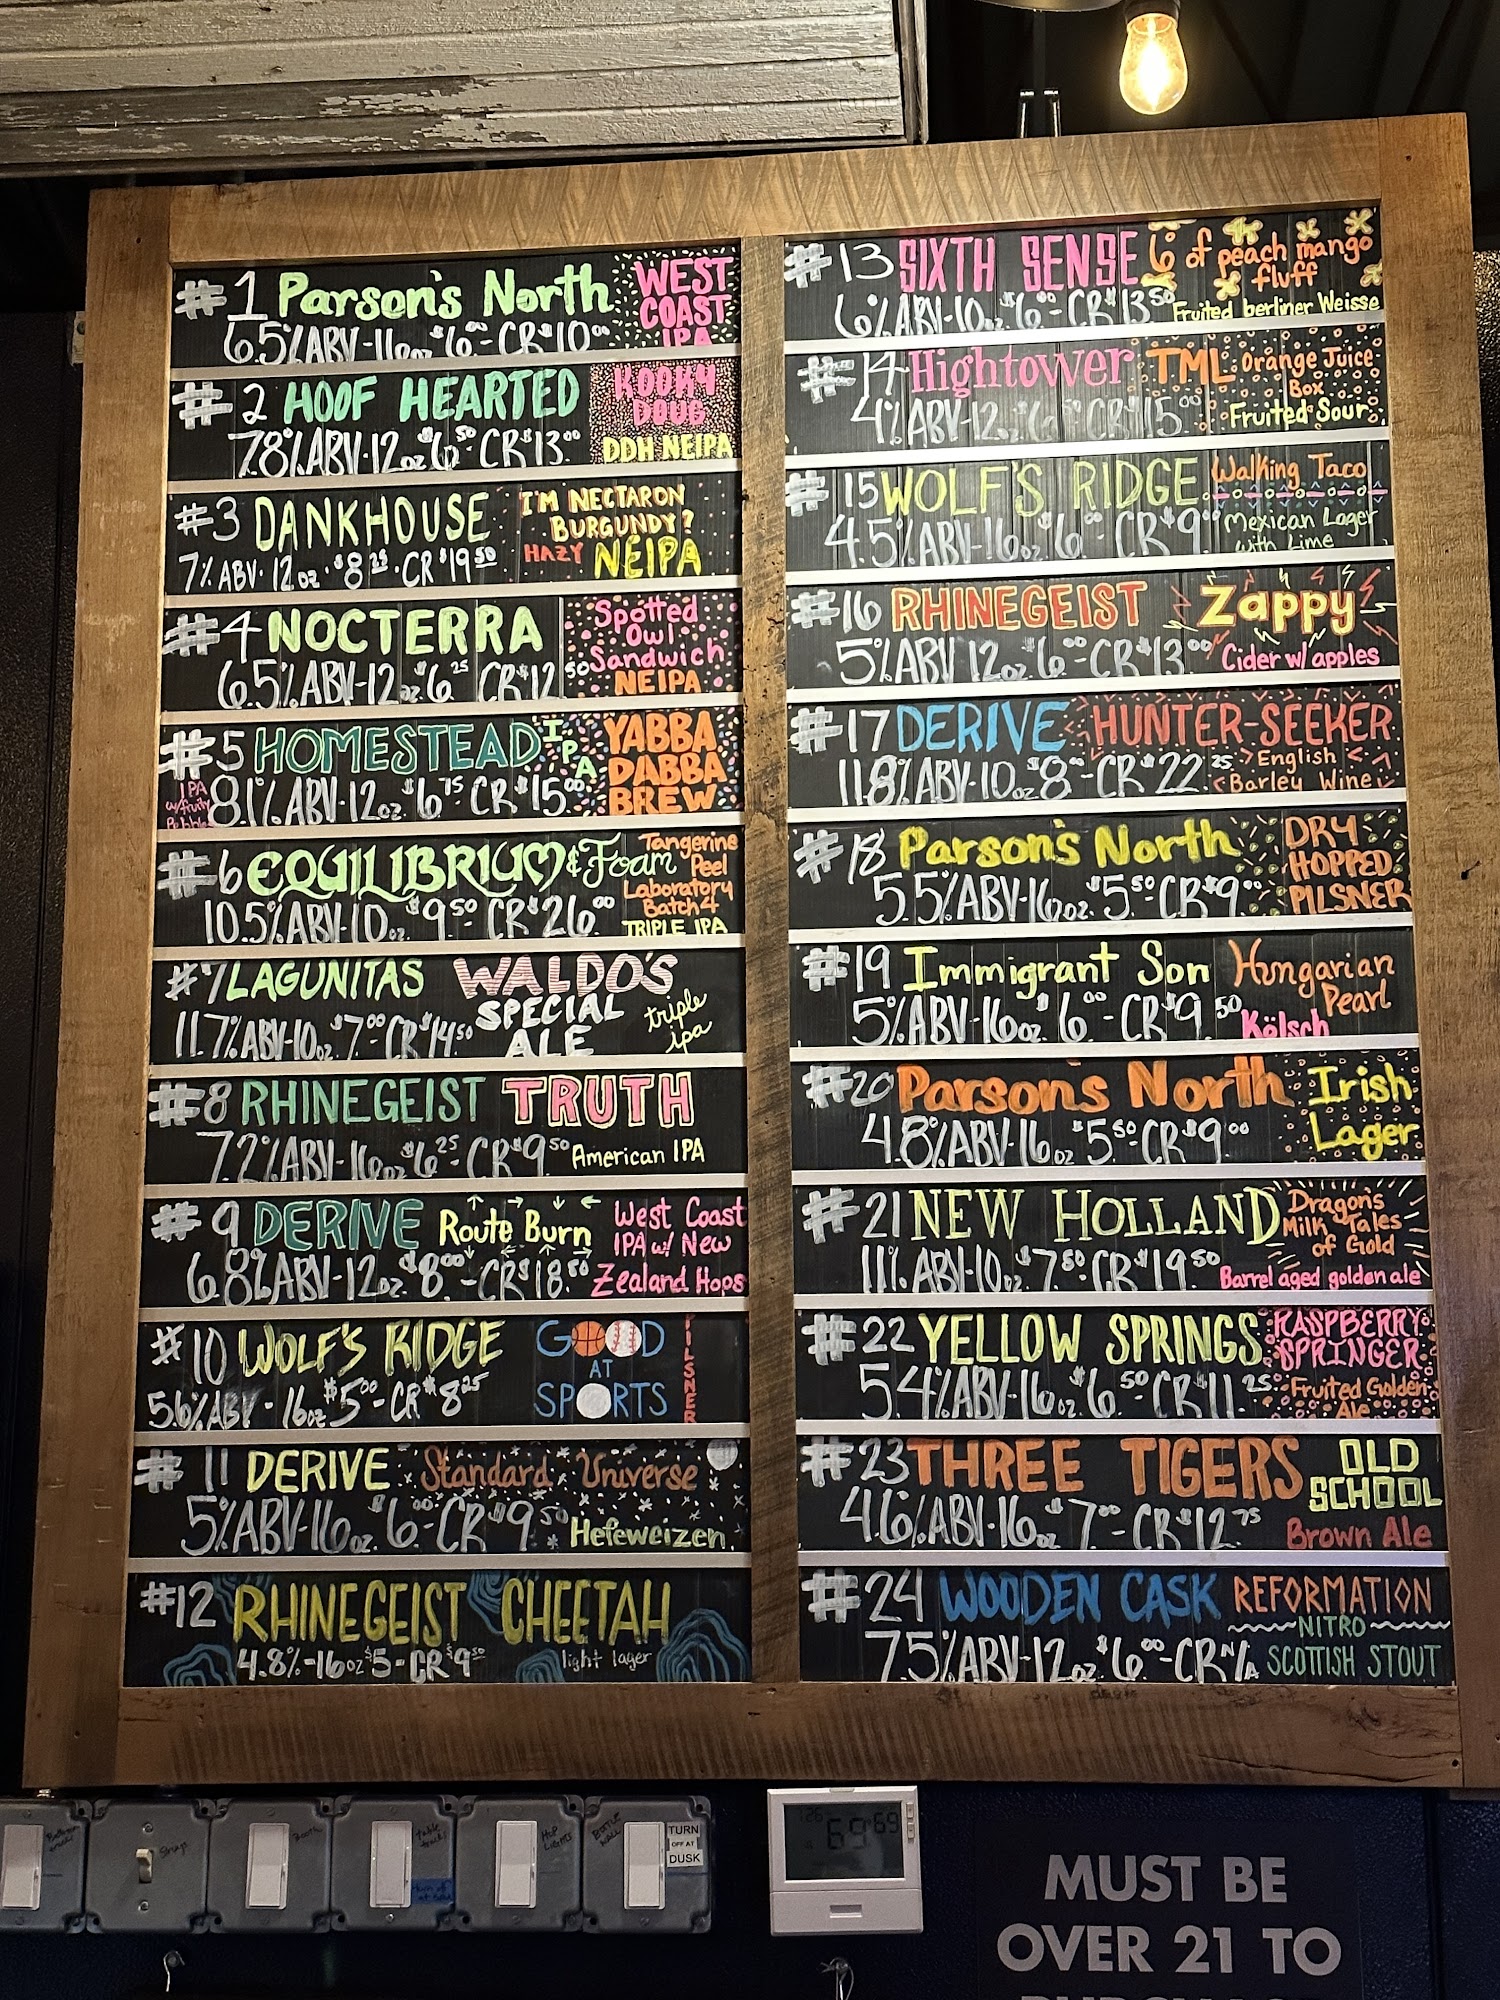 #1 Parson's North WEST COAST IPA
6.5% ABV-16oz $6.00-CR $10.00
#2 HOOF HEARTED KOOKY DOUG
7.8% ABV-12oz $6.50 CR $13.00 DDH NEIPA
#3 DANKHOUSE I'M NECTARON BURGUNDY?
7% ABV-12oz-$8.25-CR $19.50 HAZY NEIPA
#4 NOCTERRA Spotted Owl Sandwich
6.5% ABV-12oz $6.25 CR $12.50 NEIPA
#5 HOMESTEAD IPA YABBA DABBA BREW
IPA w/fruity Pebbles 8.1% ABV-12oz $6.75 CR $15.00
#6 EQUILIBRIUM & Foam Tangerine Peel Laboratory Batch 4
10.5% ABV-10oz $9.50 CR $26.00 TRIPLE IPA
#7 LAGUNITAS WALDO'S SPECIAL ALE
11.7% ABV-10oz $7.00 CR $14.50 triple ipa
#8 RHINEGEIST TRUTH
7.2% ABV-16oz $6.25-CR $9.50 American IPA
#9 DERIVE Route Burn West Coast IPA w/ New Zealand Hops
6.8% ABV-12oz $8.00-CR $18.50
#10 WOLF'S RIDGE GOOD AT SPORTS PILSNER
5.6% ABV-16oz $5.00-CR $8.25
#11 DERIVE Standard Universe
5% ABV-16oz $6.00-CR $9.50 Hefeweizen
#12 RHINEGEIST CHEETAH
4.8%-16oz $5-CR $9.50 light lager
#13 SIXTH SENSE 6 of peach mango fluff
6% ABV-10oz $6.00-CR $13.50 Fruited berliner Weisse
#14 Hightower TML Orange Juice Box
4% ABV-12oz $6.00 CR $15.00 Fruited Sour
#15 WOLF'S RIDGE Walking Taco
4.5% ABV-16oz $6.00-CR $9.00 Mexican Lager with Lime
#16 RHINEGEIST Zappy
5% ABV 12oz $6.00-CR $13.00 Cider w/ apples
#17 DERIVE HUNTER-SEEKER
11.8% ABV-10oz $8.00-CR $22.25 English Barley Wine
#18 Parson's North DRY HOPPED PILSNER
5.5% ABV-16oz $5.50-CR $9.00
#19 Immigrant Son Hungarian Pearl
5% ABV-16oz $6.00-CR $9.50 Kölsch
#20 Parson's North Irish Lager
4.8% ABV-16oz $5.50-CR $9.00
#21 NEW HOLLAND Dragon's Milk Tales of Gold
11% ABV-10oz $7.50-CR $19.50 Barrel aged golden ale
#22 YELLOW SPRINGS RASPBERRY SPRINGER
5.4% ABV-16oz $6.50-CR $11.25 Fruited Golden Ale
#23 THREE TIGERS OLD SCHOOL
4.6% ABV-16oz $7.00-CR $12.75 Brown Ale
#24 WOODEN CASK REFORMATION
7.5% ABV-12oz $6.00-CR N/A NITRO SCOTTISH STOUT
TURN
OFF AT
DUSK
69 69
MUST BE
OVER 21 TO